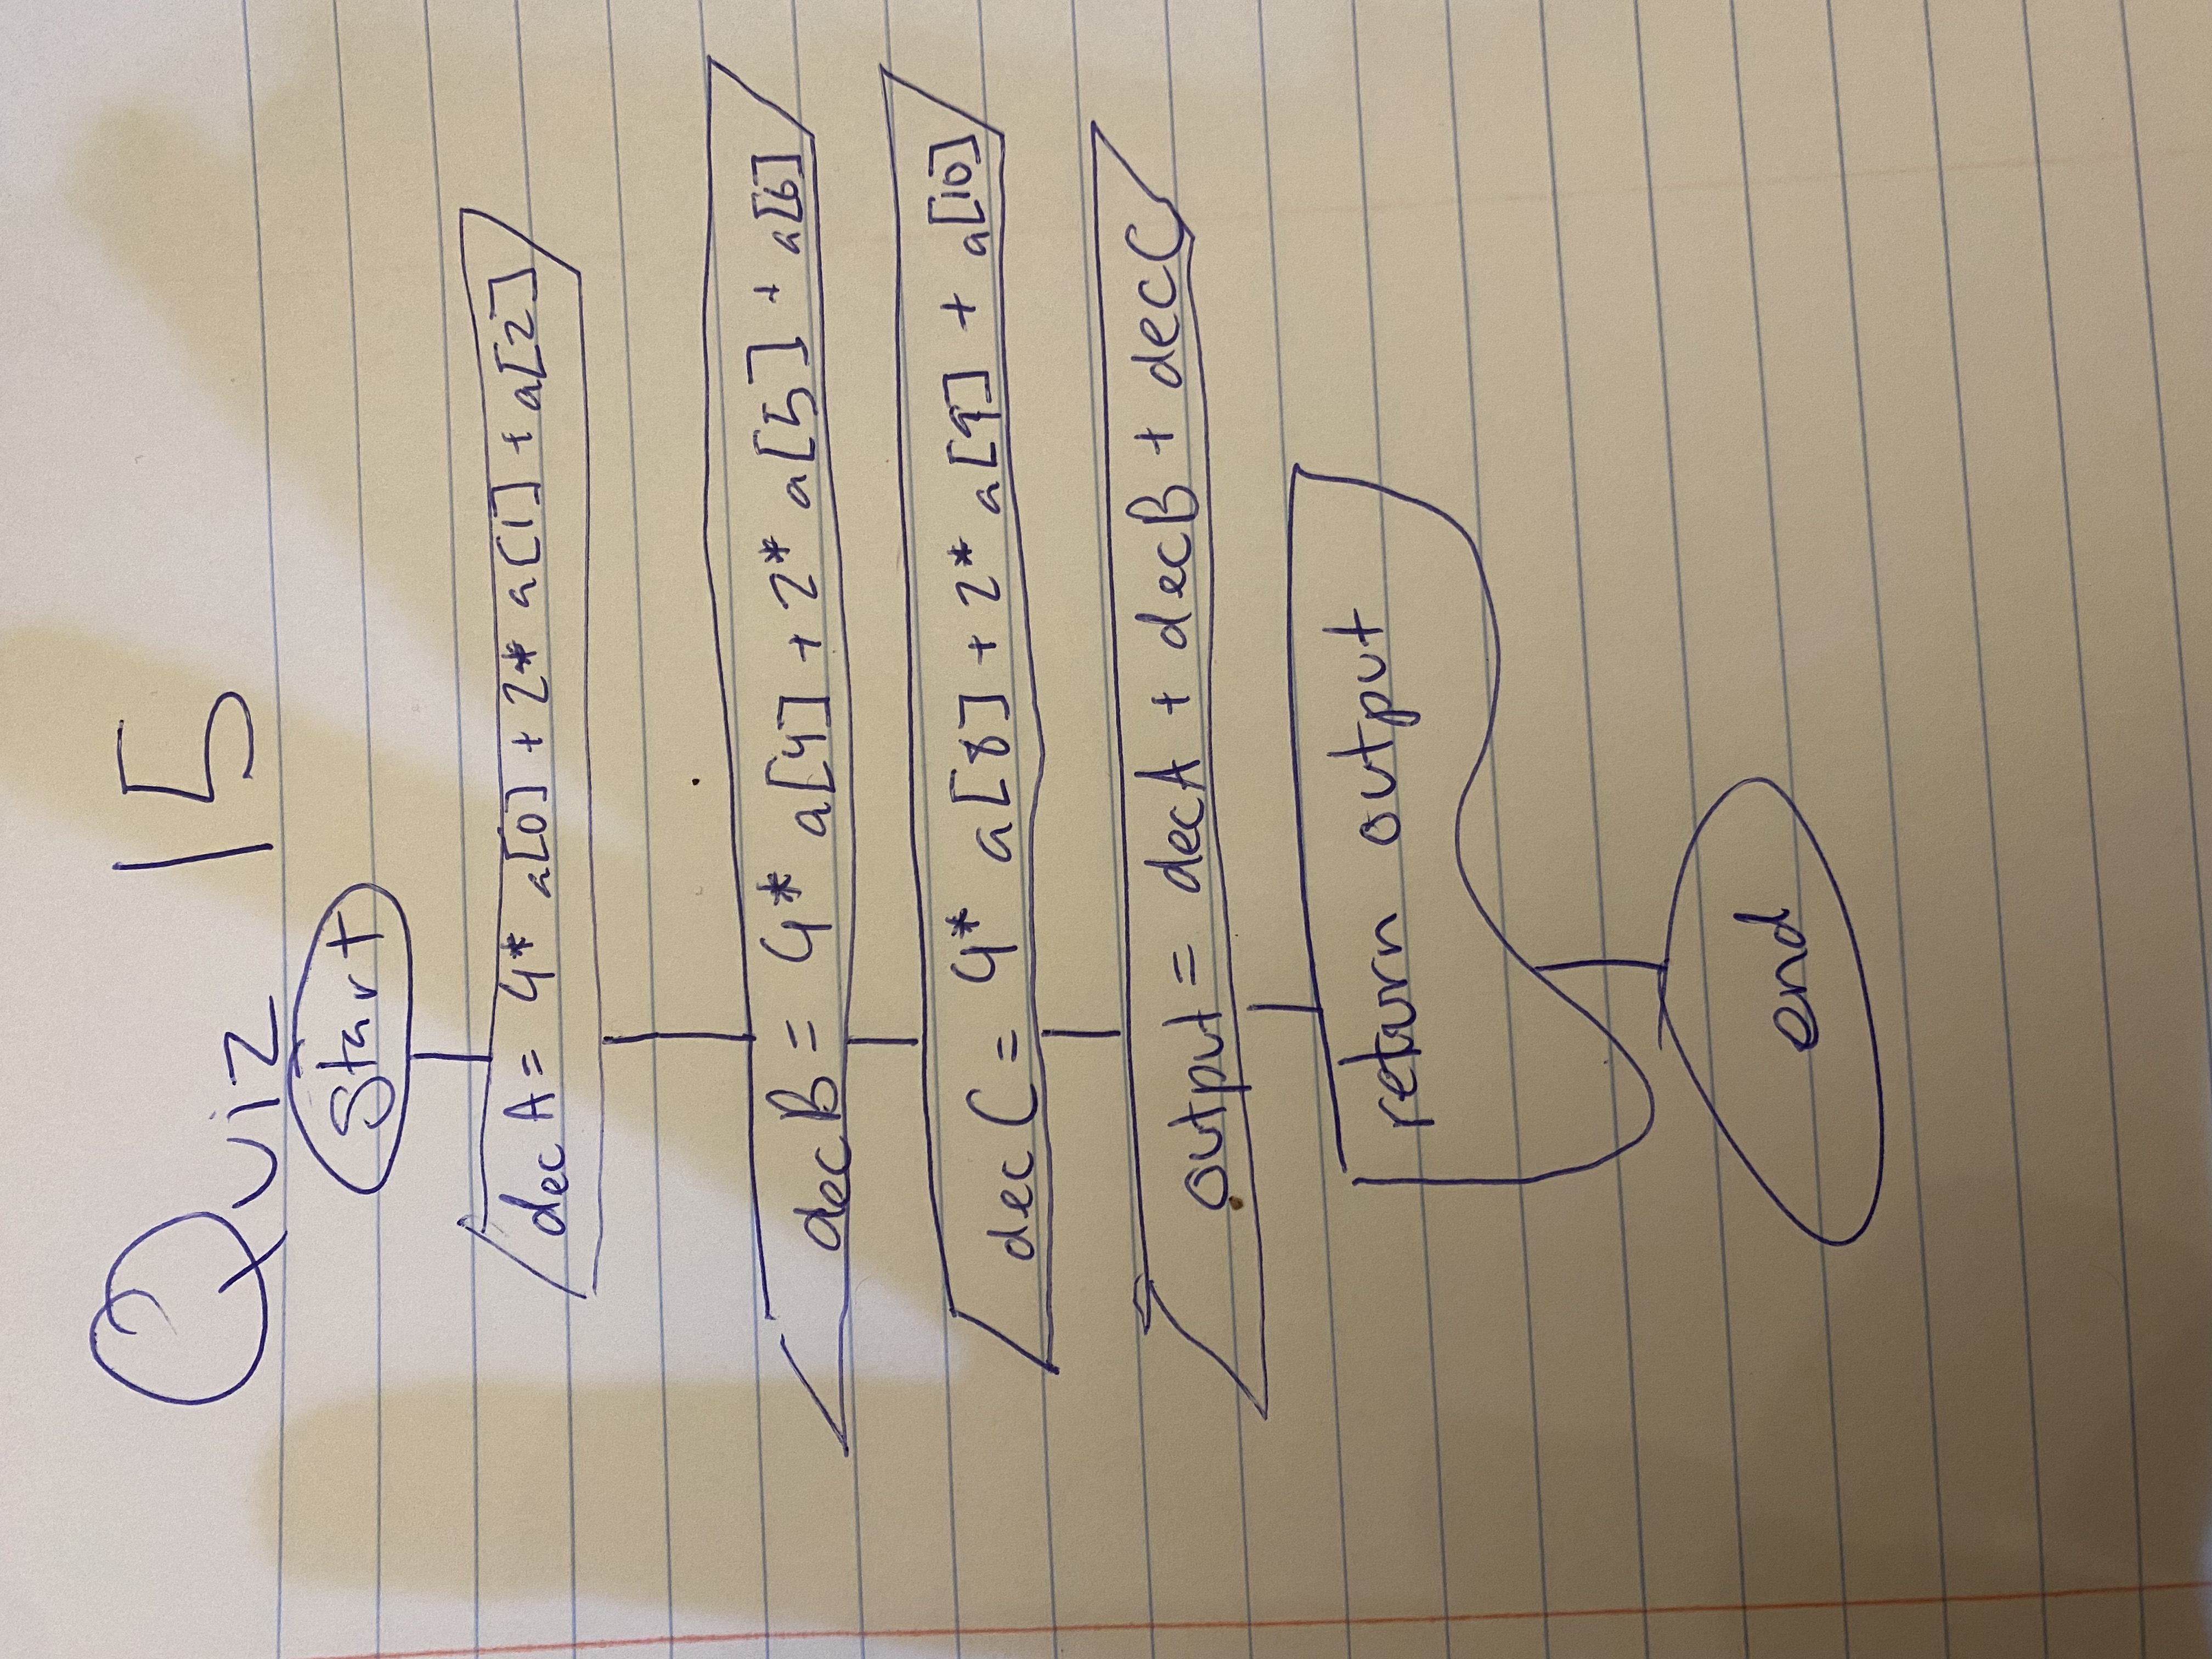 Quiz 15
start
decA = 4* a[0] + 2* a[1] + a[2]
decB = 4* a[4] + 2* a[5] + a[6]
decC = 4* a[8] + 2* a[9] + a[10]
output = decA + decB + decC
return output
end